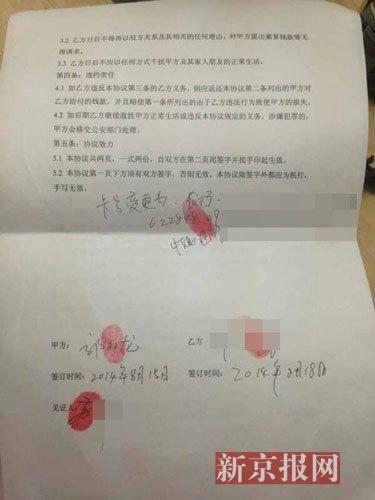 3.2 乙方日后不得再以双方关系及其相关的任何理由，对甲方提出索要钱款等无
理请求。
3.3 乙方日后不应以任何方式干扰甲方及其家人朋友的正常生活。
第四条：违约责任
4.1 如乙方违反本协议第三条的乙方义务，则应返还本协议第二条列出的甲方对
乙方给付的钱款，并且赔偿第一条所列出的由于乙方违法行为致使甲方的损失。
4.2 如后期乙方继续滋扰甲方正常生活或违反本协议规定的义务，涉嫌犯罪的，
甲方会移交公安部门处理。
第五条：协议效力
5.1 本协议共两页，一式两份，自双方在第二页尾签字并按手印起生效。
5.2 本协议第一页下方须有双方签字，否则无效。本协议除签字外都应为机打，
手写无效。
卡号变更为：农行.
62284
甲方：
乙方
签订时间：2014年8月15日
签订时间：2014年 月18日
见证人：
新京报网